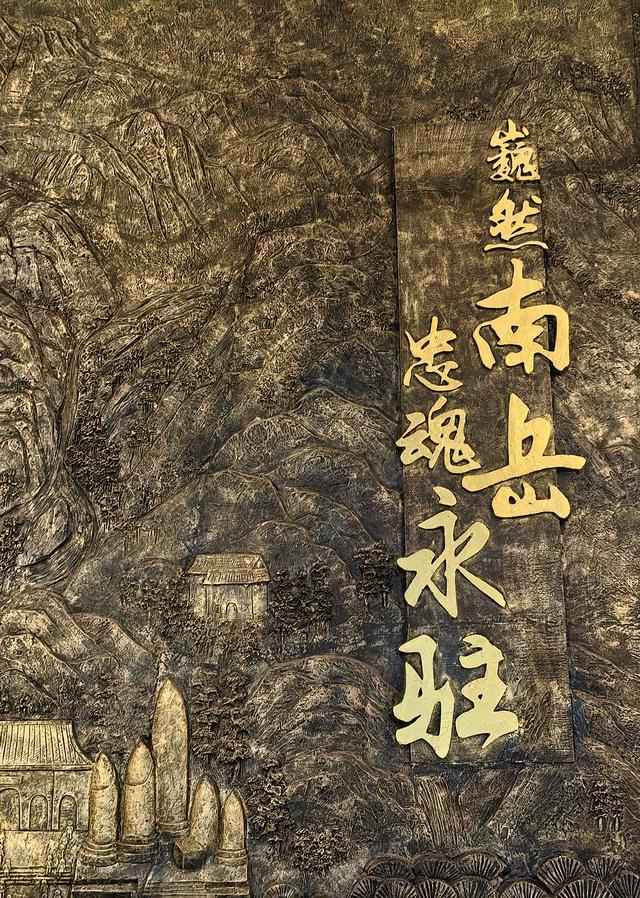 巍然南岳
忠魂永驻